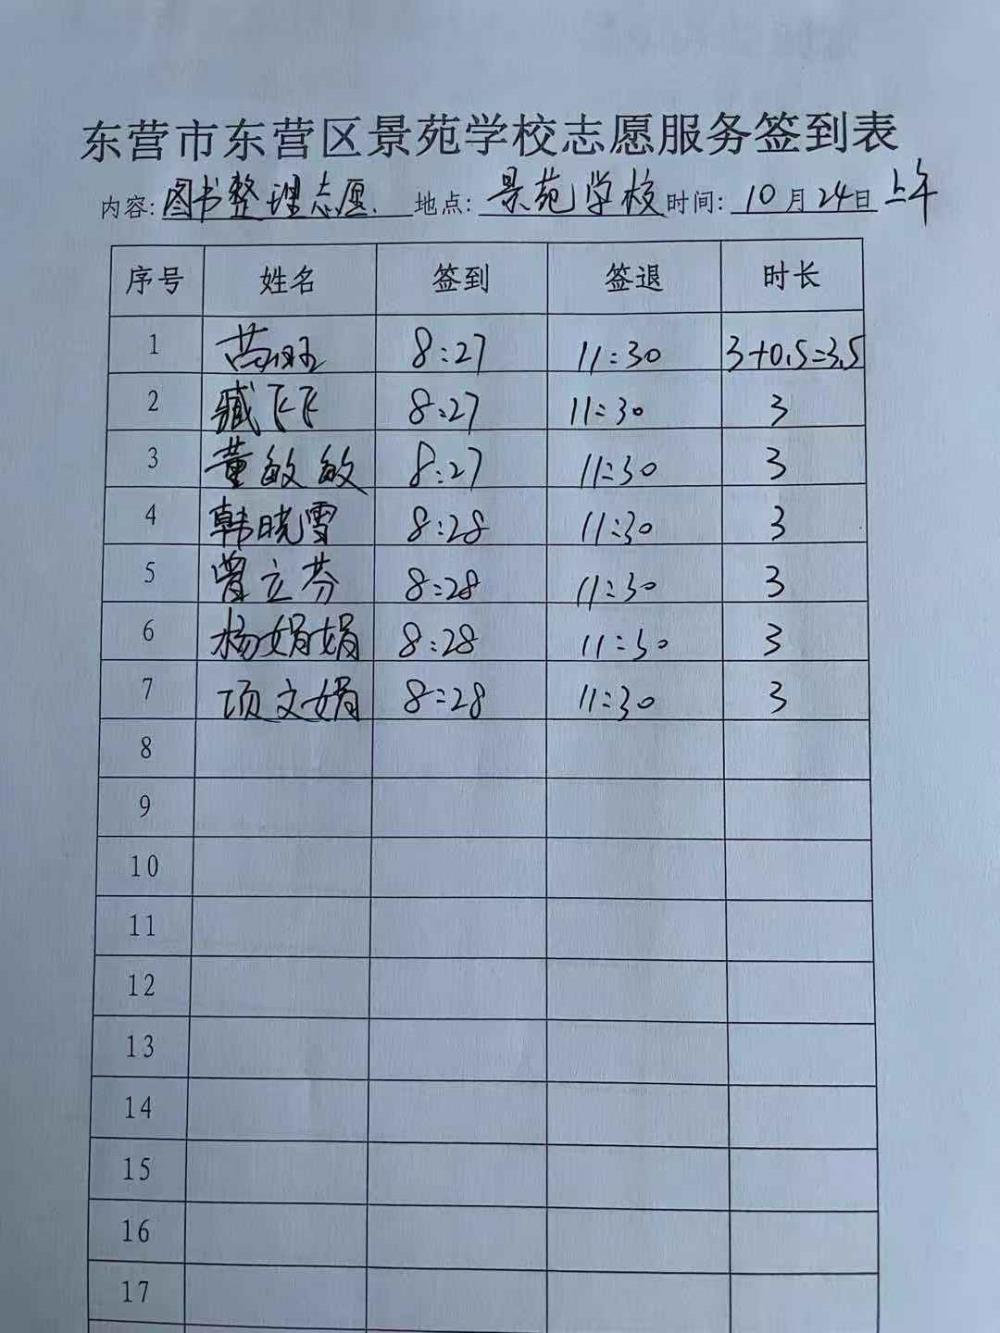 东营市东营区景苑学校志愿服务签到表
内容: 图书整理志愿. 地点: 景苑学校 时间: 10月24日上午
序号 姓名 签到 签退 时长
1 8:27 11:30 3+0.5=3.5
2 臧飞飞 8:27 11:30 3
3 董敏敏 8:27 11:30 3
4 韩晓雪 8:28 11:30 3
5 曾立芬 8:28 11:30 3
6 杨娟娟 8:28 11:30 3
7 项文娟 8:28 11:30 3
8
9
10
11
12
13
14
15
16
17